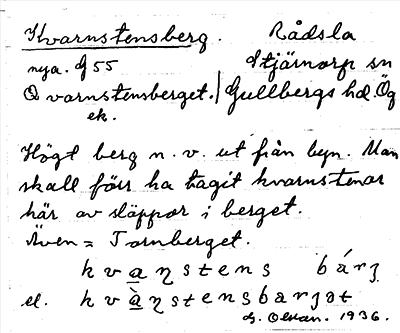 Kvarnstensberg. Rådsla
nya. G 55 Stjärnorp sn
Qvarnstensberget. / Gullbergs hd. Ög
ek.
Högt berg n. v. ut från byn. Man
skall förr ha tagit kvarnstenar
här av släppor i berget.
Även = Tornberget.
kvaꞃstens bárȝ
el. kvàꞃstensbarȝət
1936.